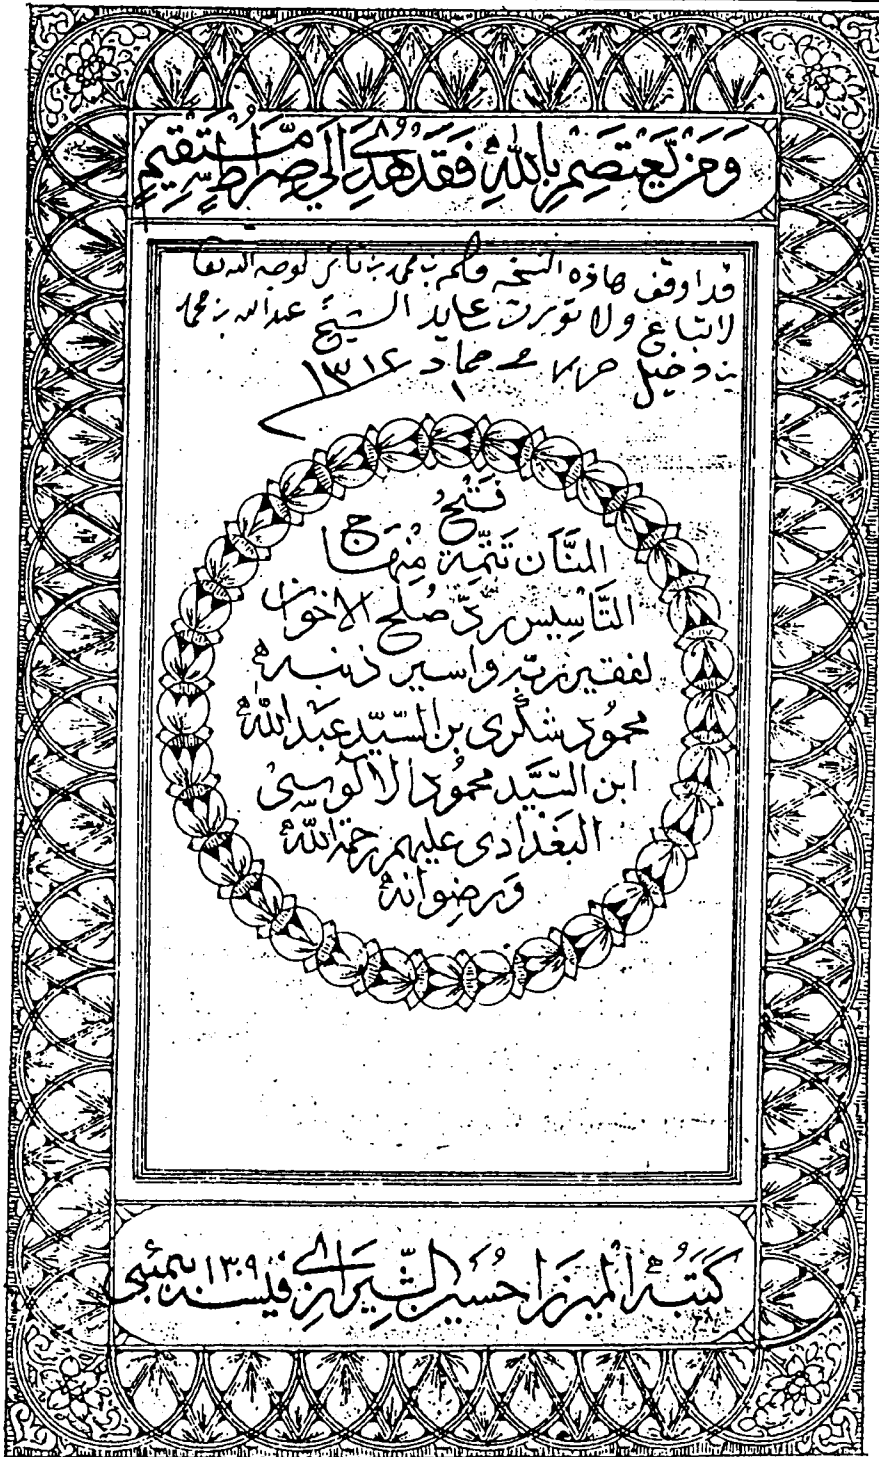 وَمَن يَّعْتَصِمْ بِاللّٰهِ فَقَدْ هُدِيَ إِلَىٰ صِرَاطٍ مُّسْتَقِيمٍ
قد اوقف هاذه النسخه بن محمد بن لوجه الله تعا
لاتباع ولا تورث الشيخ عبدالله بن محمد
بن دخيل حرر جماد ١٣١٢
فَتْحُ
المنَّان تَتِمَّة مِنْهَاج
التَّاسِيس رَدّ صُلْح الاخوان
لفقير ربّه واسير ذنبه
محمُود شكرى بن السّيّد عبد اللّٰه
ابن السَّيّد محمُود الآلوسى
البَغْدَادى عليهم رحمة اللّٰه
وَرضِوانهُ
كَتَبَهُ الميرزا حُسَين الشِّيرازي في سنه ١٣٠٩ بمبئى